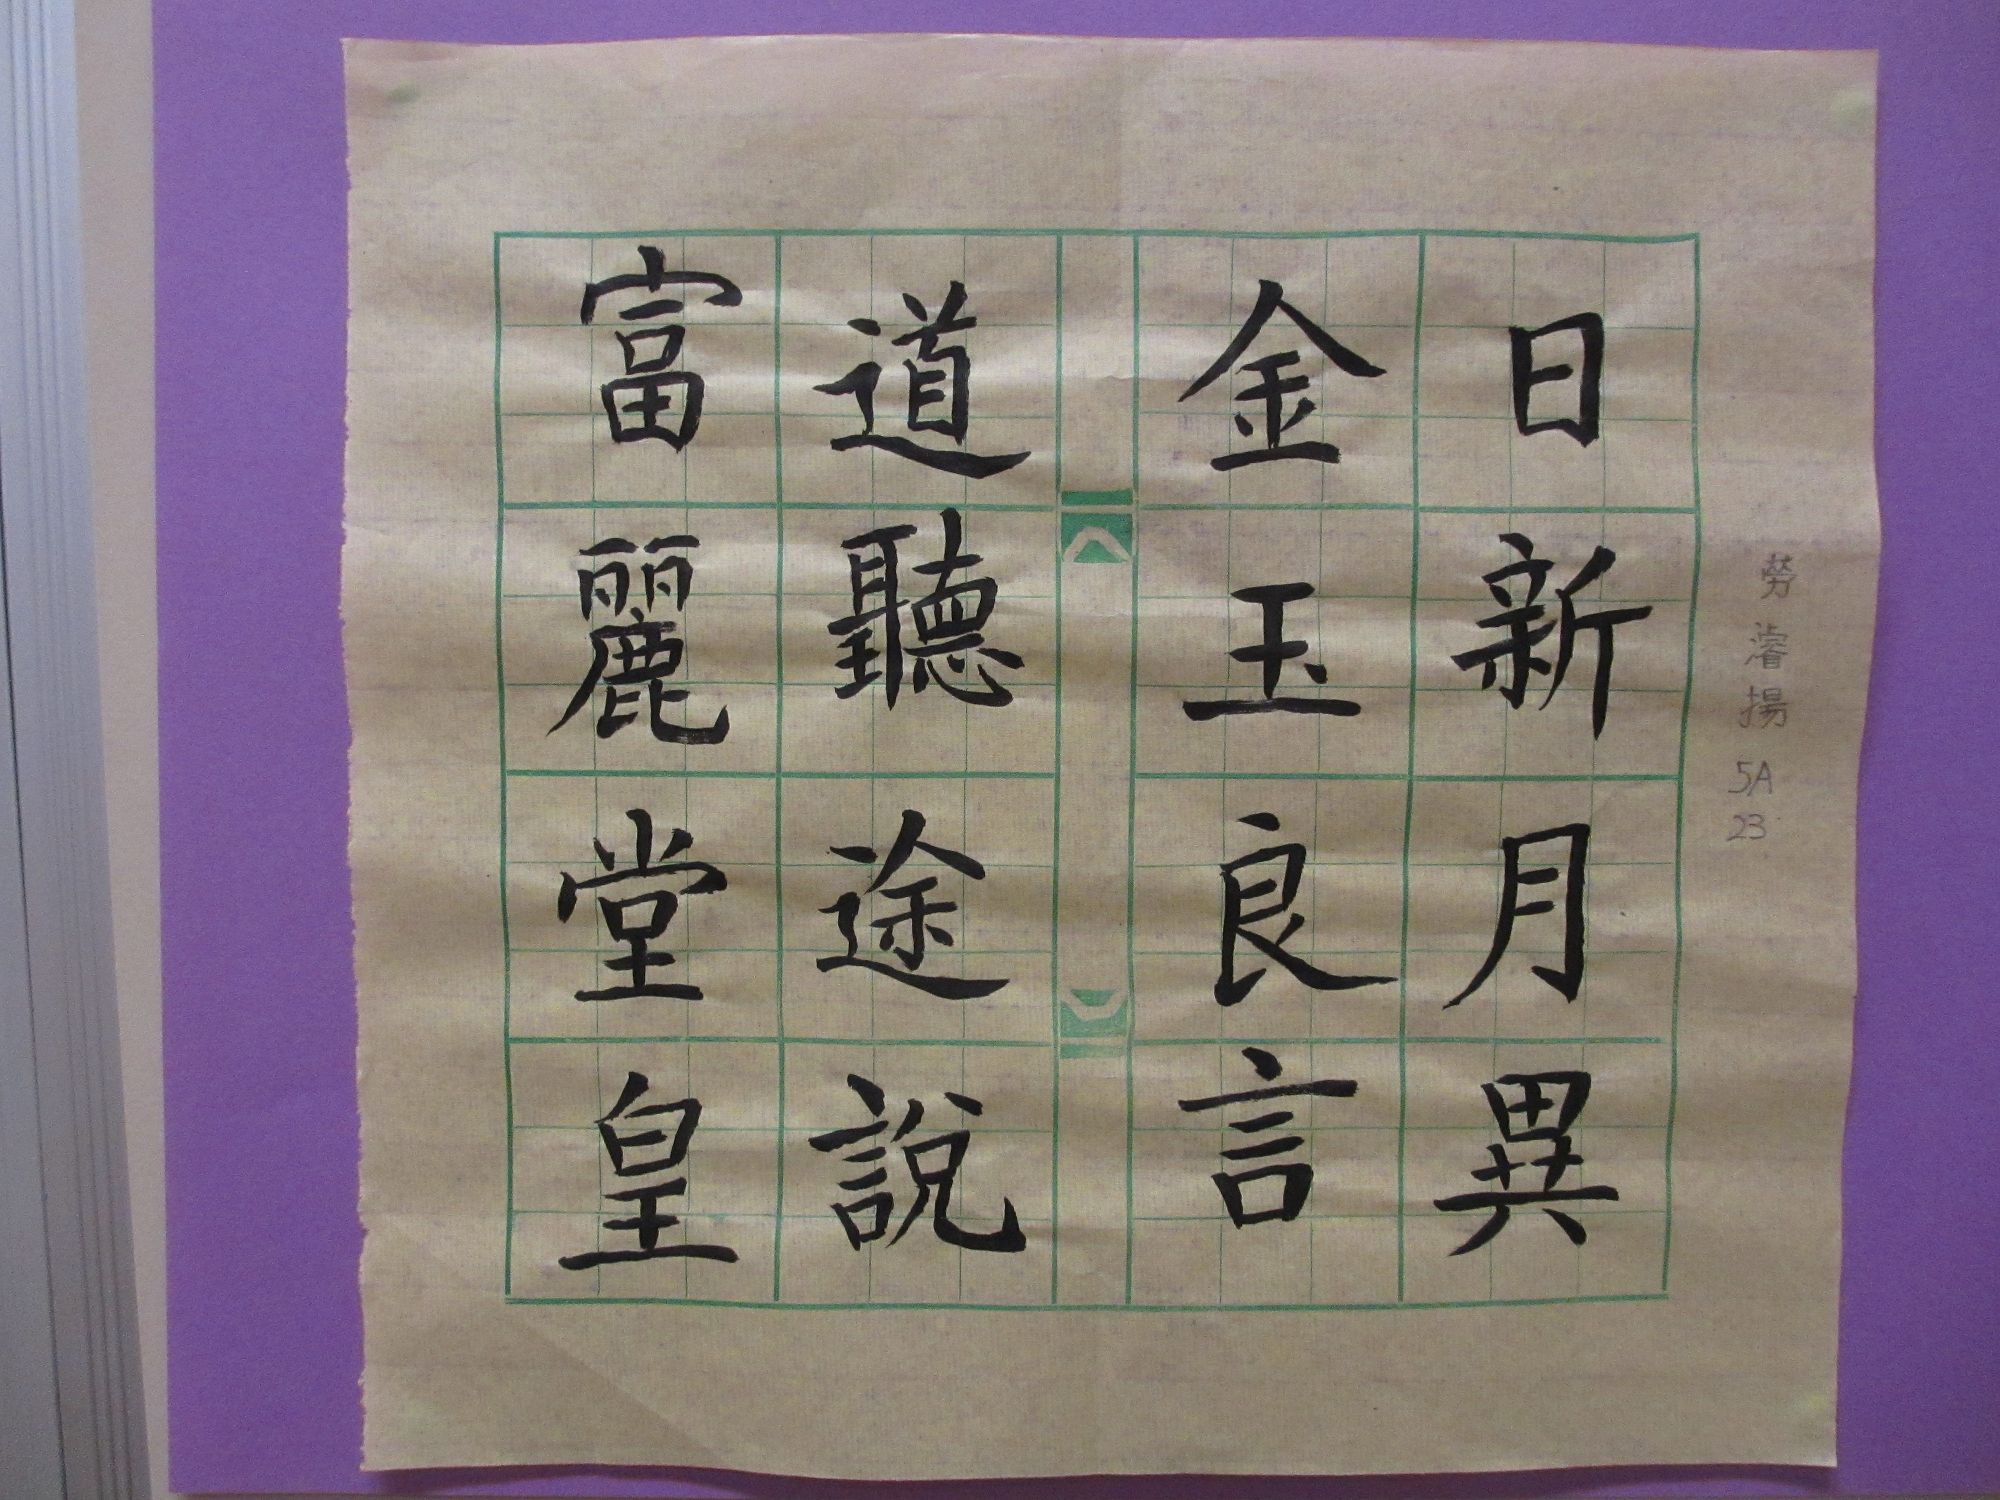 日新月異
金玉良言
道聽途說
富麗堂皇
勞濬揚
5A
23